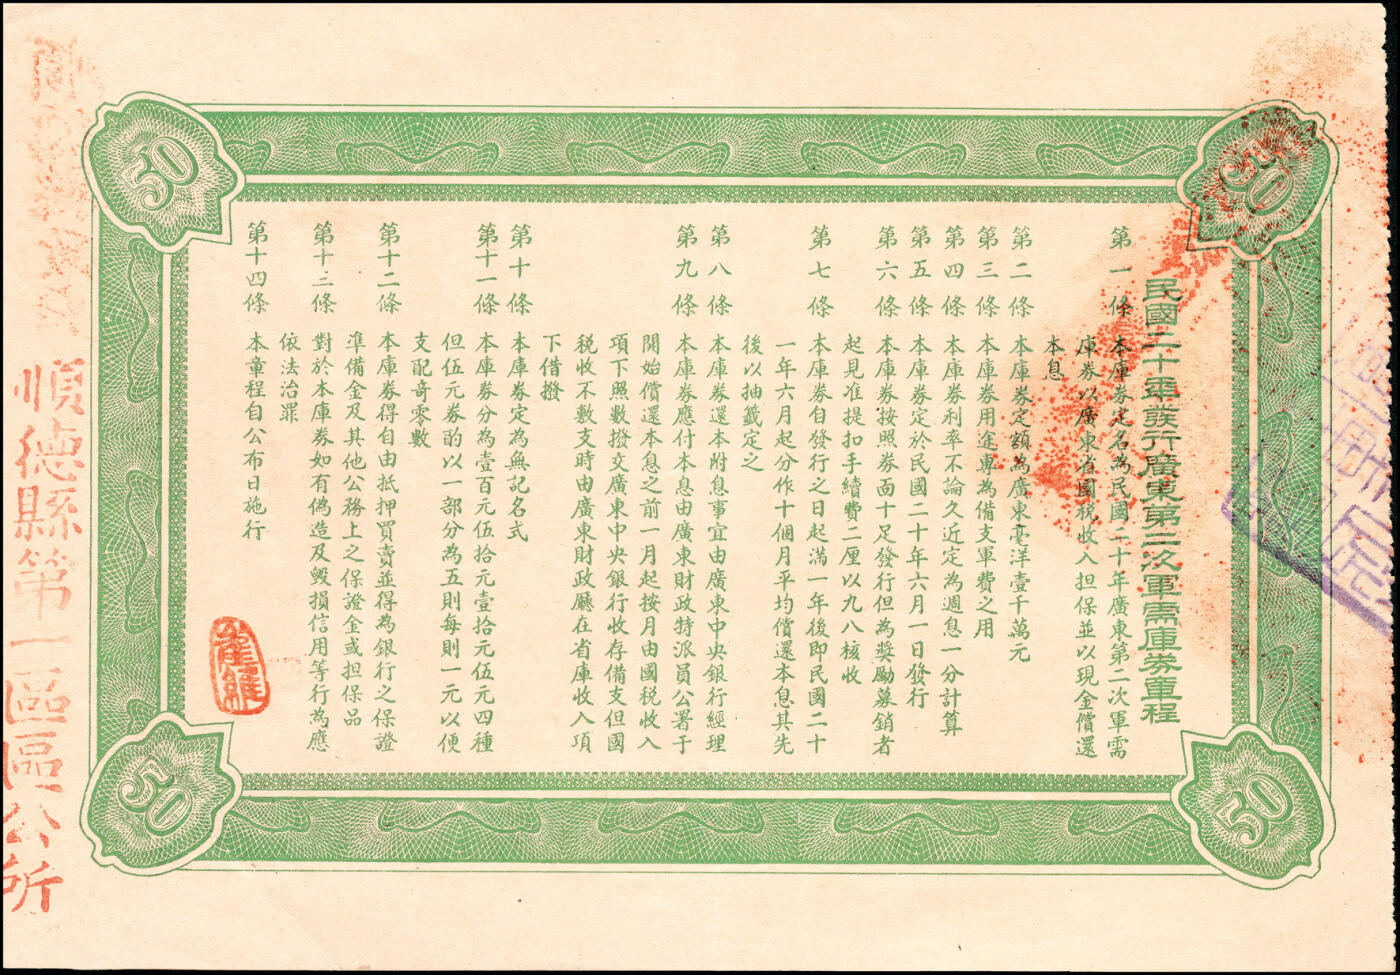 50
50
民國二十年發行廣東第二次軍需庫券章程
第一條 本庫券定名為民國二十年廣東第二次軍需
庫券以廣東省國税收入担保並以現金償還
本息
第二條 本庫券定額為廣東毫洋壹千萬元
第三條 本庫券用途專為備支軍費之用
第四條 本庫券利率不論久近定為週息一分計算
第五條 本庫券定於民國二十年六月一日發行
第六條 本庫券按照券面十足發行但為奬勵募銷者
起見准提扣手續費二厘以九八核收
第七條 本庫券自發行之日起滿一年後即民國二十
一年六月起分作十個月平均償還本息其先
後以抽籤定之
第八條 本庫券還本附息事宜由廣東中央銀行經理
第九條 本庫券應付本息由廣東財政特派員公署于
開始償還本息之前一月起按月由國税收入
項下照數撥交廣東中央銀行收存備支但國
税收不敷支時由廣東財政廳在省庫收入項
下借撥
第十條 本庫券定為無記名式
第十一條 本庫券分為壹百元伍拾元壹拾元伍元四種
但伍元券酌以一部分為五則每則一元以便
支配奇零數
第十二條 本庫券得自由抵押買賣並得為銀行之保證
準備金及其他公務上之保證金或担保品
第十三條 對於本庫券如有偽造及毀損信用等行為應
依法治罪
第十四條 本章程自公布日施行
順德縣第一區區公所
50
50